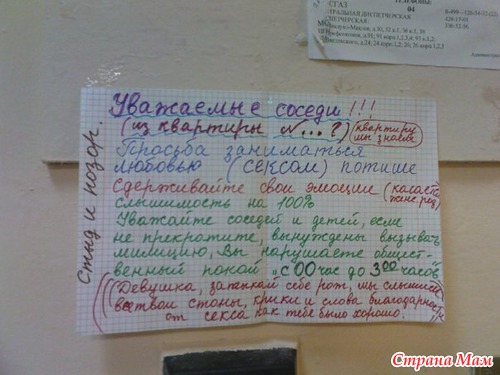 МОСГАЗ
04
ТЕЛЕФОНЫ:
ДИСПЕТЧЕРСКАЯ
Стыд и позор.
Уважаемые соседи!!!
(из квартиры №...?) (квартиру мы знаем)
Просьба заниматься
любовью (сексом) потише
Сдерживайте свои эмоции (касается женс. род)
слышимость на 100%
Уважайте соседей и детей, если
не прекротите, вынуждены вызывать
милицию, Вы нарушаете общест-
венный покой "с 00 час до 3 00 часов"
(Девушка, затыкай себе рот, мы слышим
все твои стоны, крики и слова благодарности
от секса как тебе было хорошо.
Страна Мам